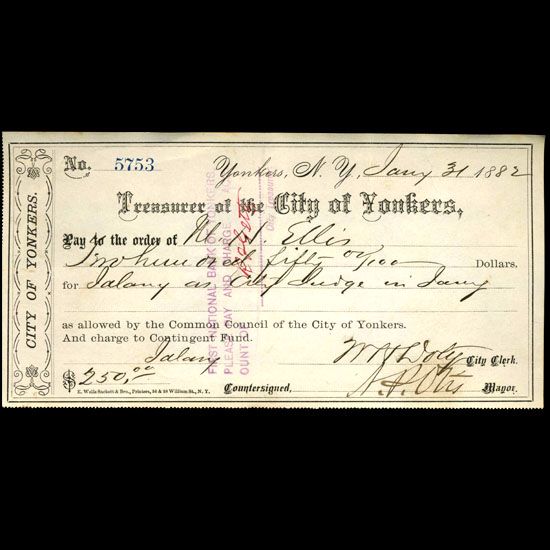 CITY OF YONKERS.
No. 5753
Yonkers, N. Y., Jany 31 1882
Treasurer of the City of Yonkers,
Pay to the order of W. H. Ellis
Two hundred fifty 00/100 Dollars.
for Salary as City Judge in Jany
as allowed by the Common Council of the City of Yonkers.
And charge to Contingent Fund.
Salary
W H Doty City Clerk.
$ 250.00
Countersigned, N. P. Otis Mayor.
E. Wells Sackett & Bro., Printers, 56 & 58 William St., N. Y.
FIRST NATIONAL BANK OF YONKERS,
PLEASE PAY AND CHARGE
City Treasurer